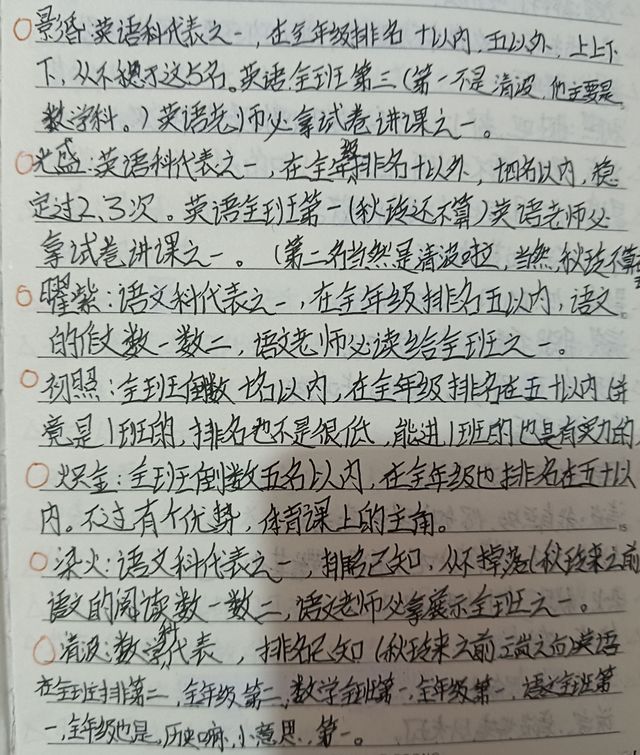 景湣:英语科代表之一，在全年级排名十以内，五以外，上上下
下，从不稳于这5名。英语全班第三(第一不是清波，他主要是
数学科。)英语老师必拿试卷讲课之一。
光盛:英语科代表之一，在全年级排名十以外，四名以内，稳
定过2、3次。英语全班第一(秋玲还不算)英语老师必
拿试卷讲课之一。(第二名当然是清波啦，当然,秋玲不算
曜紫:语文科代表之一，在全年级排名五以内，语文
的作文数一数二，语文老师必读给全班之一。
初照:全班倒数十名以内，在全年级排名在五十以内(毕
竟是1班的，排名也不是很低，能进1班的也是有实力的
:全班倒数五名以内，在全年级也排名在五十以
内。不过有个优势，体育课上的主角。
梁火:语文科代表之一，排名已知，从不掉落(秋玲来之前
语文的阅读数一数二，语文老师必拿展示全班之一。
清波:数学科代表，排名已知(秋玲来之前)英语
在全班排第二，全年级第二，数学全班第一，全年级第一，语文全班第
一，全年级也是，历史嘛，小意思，第一。